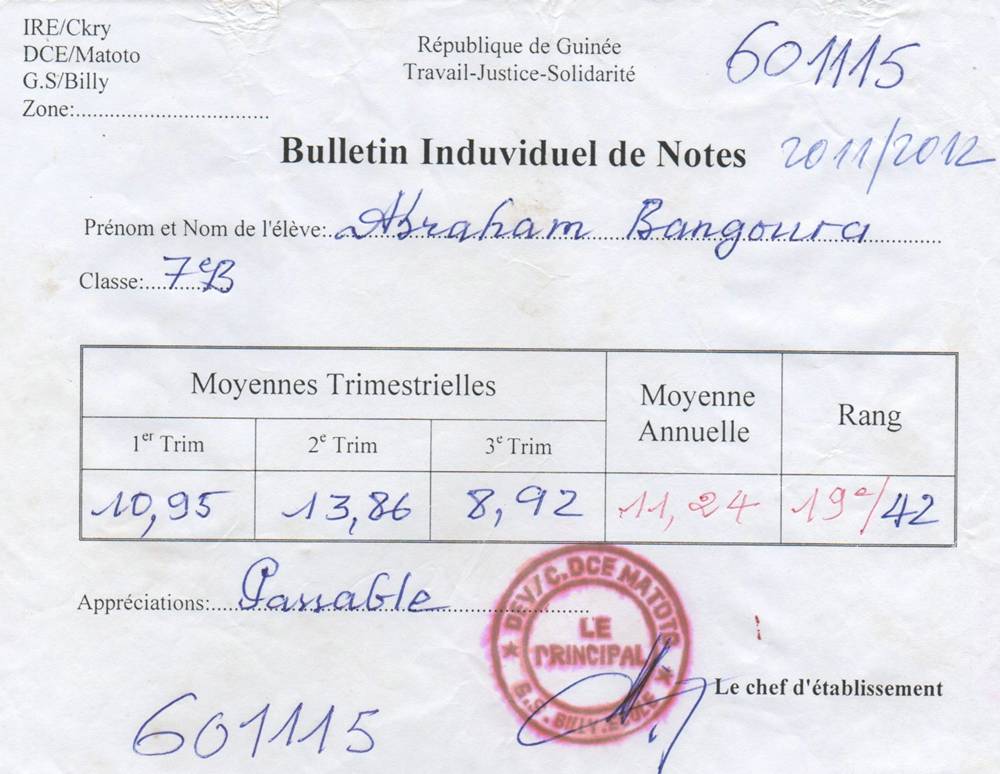 IRE/Ckry
DCE/Matoto
G.S/Billy
Zone:
République de Guinée
Travail-Justice-Solidarité
601115
Bulletin Induviduel de Notes 2011/2012
Prénom et Nom de l'élève: Abraham Bangoura
Classe: 7eB
Moyennes Trimestrielles
Moyenne Annuelle
Rang
1er Trim 2e Trim 3e Trim
10,95 13,86 8,92 11,24 19e/42
Appréciations: Passable
DEV/C.DCE MATOTO
LE
PRINCIPAL
G.S. BILLY
Le chef d'établissement
601115